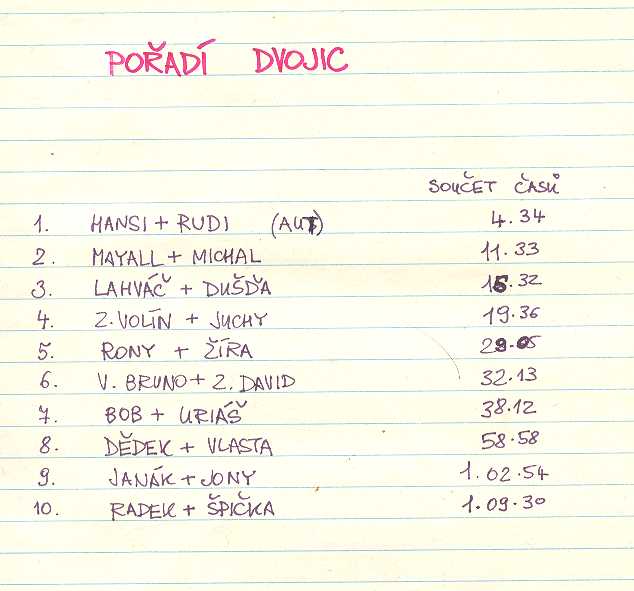 POŘADÍ DVOJIC
SOUČET ČASŮ
1. HANSI + RUDI (AUT) 4.34
2. MAYALL + MICHAL 11.33
3. LAHVÁČ + DUŠĎA 15.32
4. Z. VOLÍN + JUCHY 19.36
5. RONY + ŽÍRA 29.05
6. V. BRUNO + Z. DAVID 32.13
7. BOB + URIÁŠ 38.12
8. DĚDEK + VLASTA 58.58
9. JANÁK + JONY 1.02.54
10. RADEK + ŠPIČKA 1.09.30